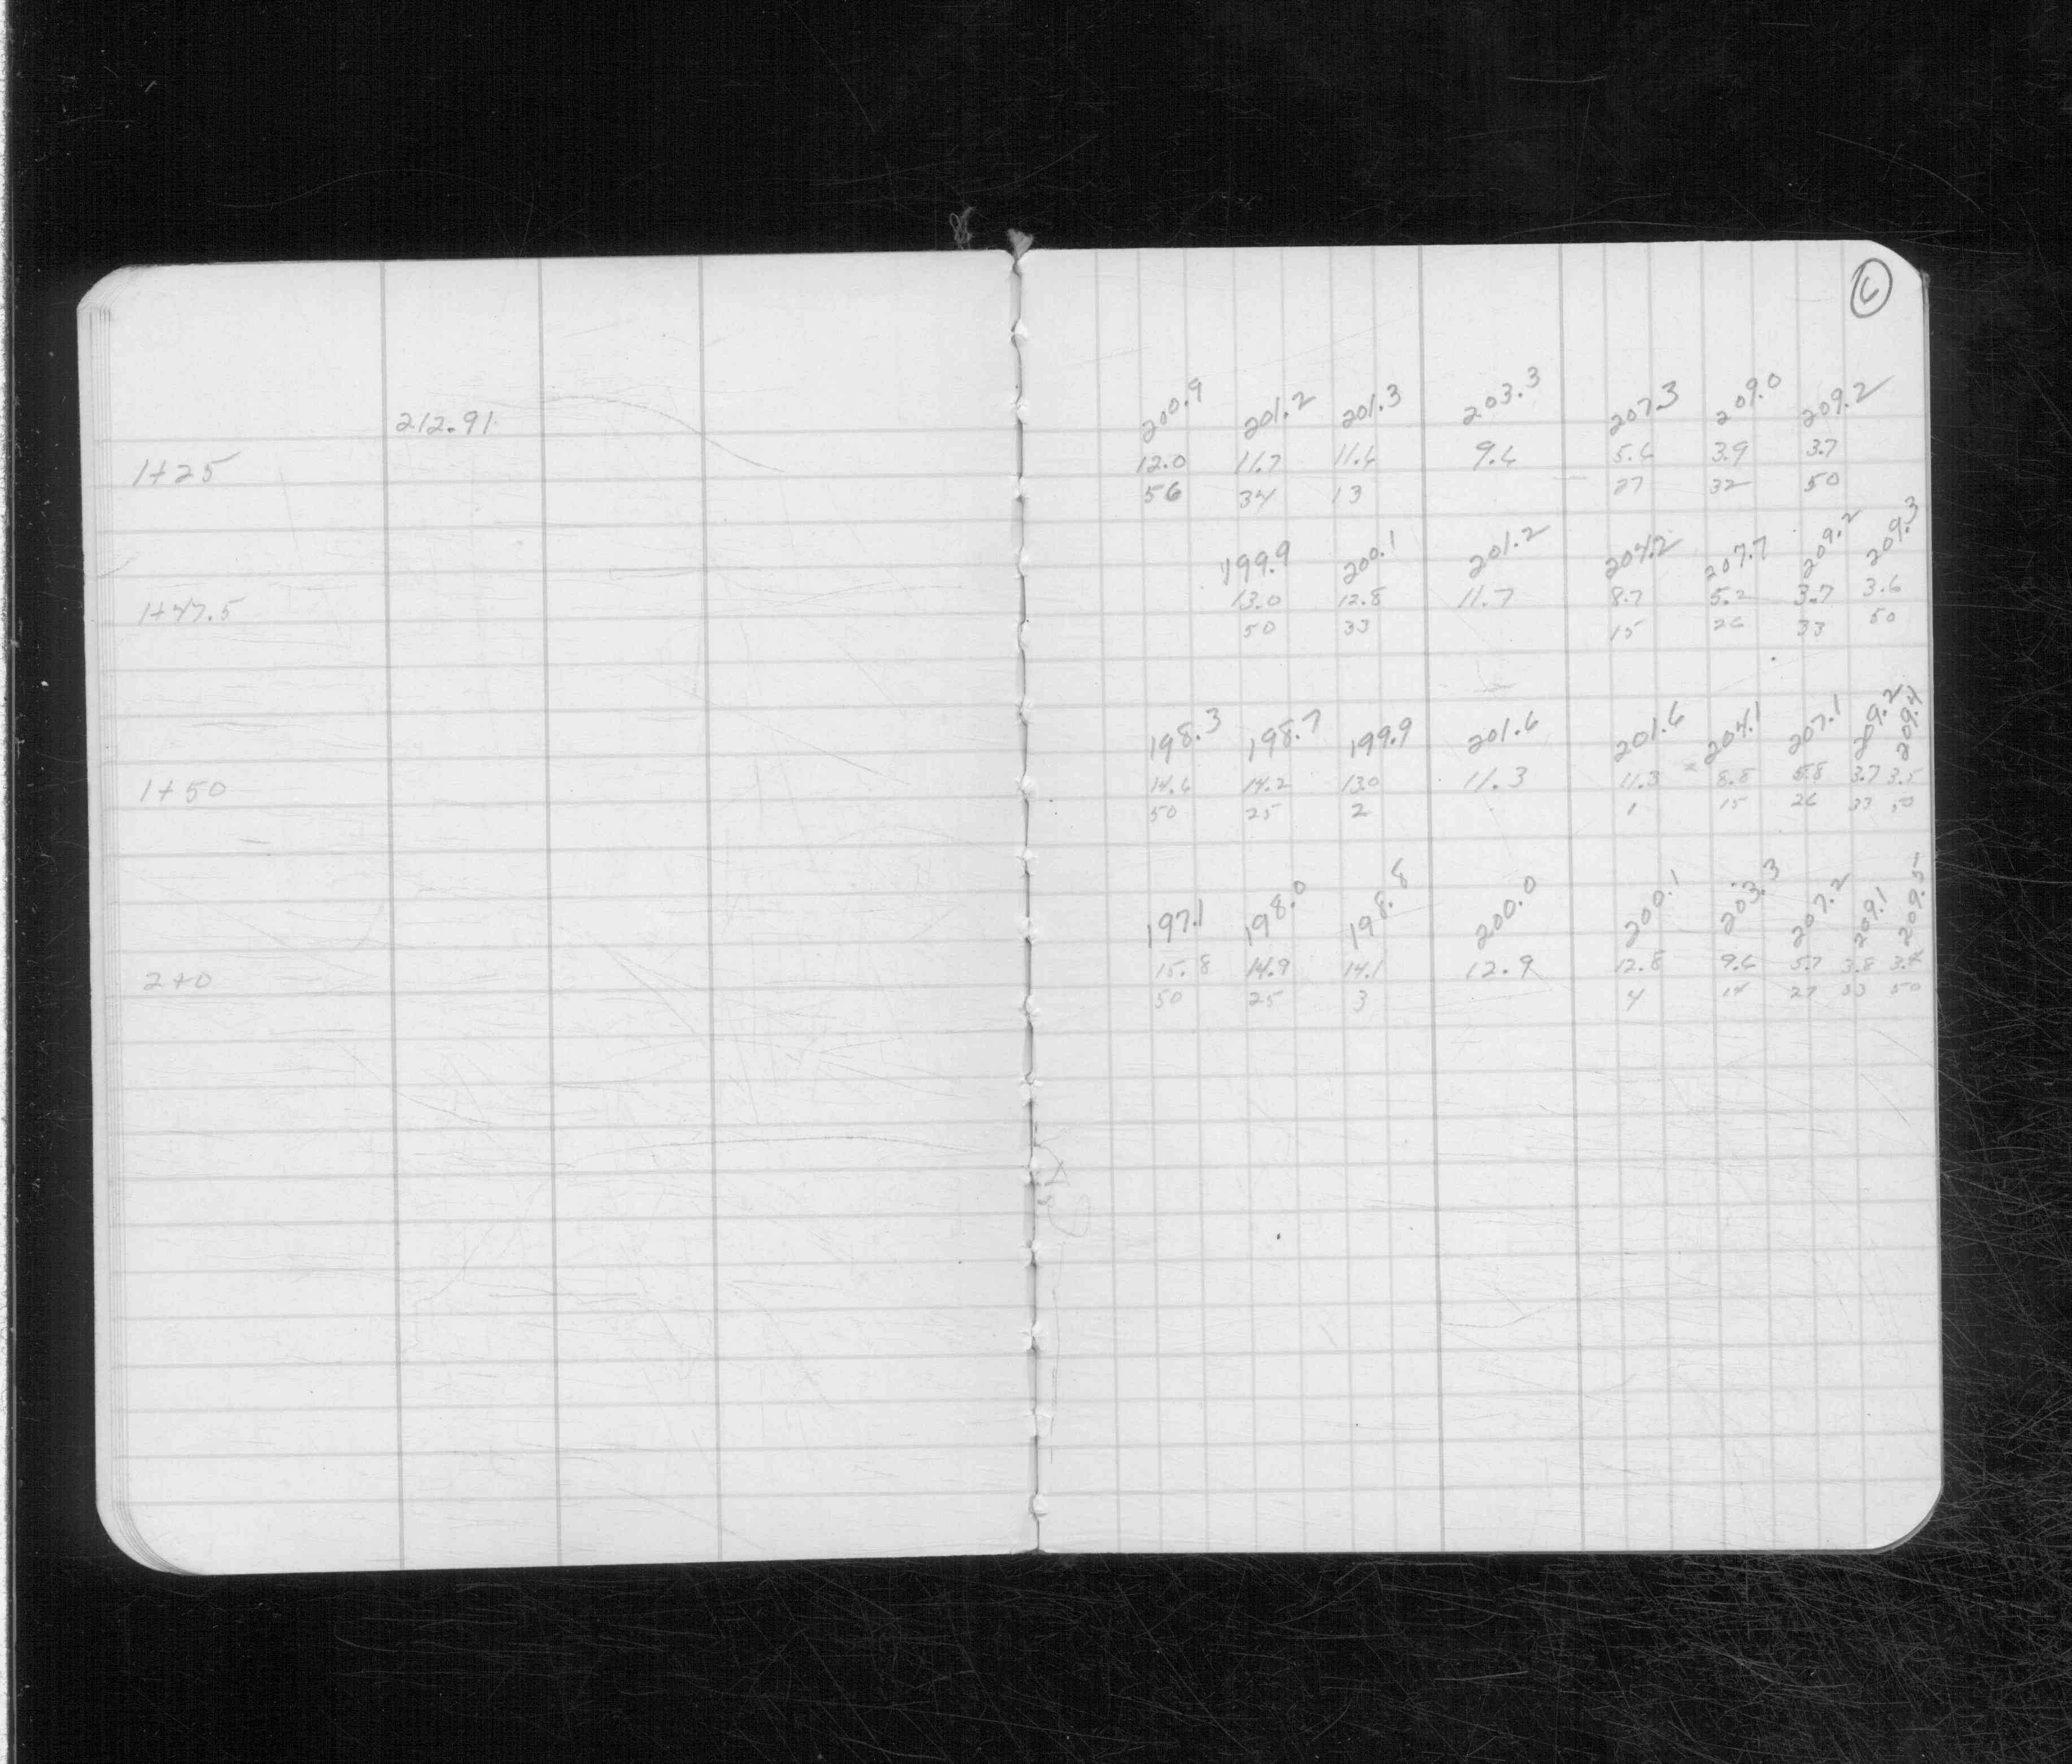 6
212.91 200.9 201.2 201.3 203.3 207.3 209.0 209.2
1+25 12.0 11.7 11.6 9.6 5.6 3.9 3.7
56 34 13 27 32 50
199.9 200.1 201.2 204.2 207.7 209.2 209.3
1+47.5 13.0 12.8 11.7 8.7 5.2 3.7 3.6
50 33 15 26 33 50
198.3 198.7 199.9 201.6 201.6 204.1 207.1 209.2 209.4
1+50 14.6 14.2 13.0 11.3 11.3 8.8 5.8 3.7 3.5
50 25 2 1 15 26 33 50
197.1 198.0 198.8 200.0 200.1 203.3 207.2 209.1 209.5
2+0 15.8 14.9 14.1 12.9 12.8 9.6 5.7 3.8 3.4
50 25 3 4 14 27 33 50